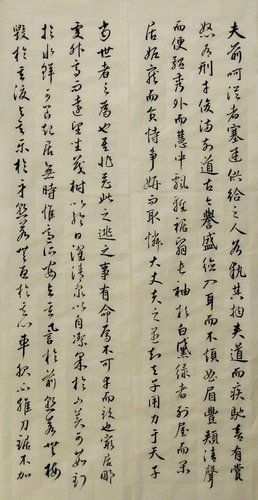 夫前呵從者塞途供給之人各執其物夾道而疾馳喜有賞
怒有刑才俊滿前道古今譽盛德入耳而不煩曲眉豐頰清聲
而便體秀外而慧中飄輕裾翳長袖粉白黛綠者列屋而閑
居妬寵而負恃爭妍而取憐大丈夫之遇知天子用力于天子
當世者之爲也吾非惡此之逃之事有命焉不可幸而致也窮居野
處升高而望遠坐茂樹以終日濯清泉以自潔采於山美可茹釣
於水鮮可食起居無時惟適之安與其譽於前孰若無
毀於其後與其樂於身孰若無憂於其心車服不維刀鋸不加